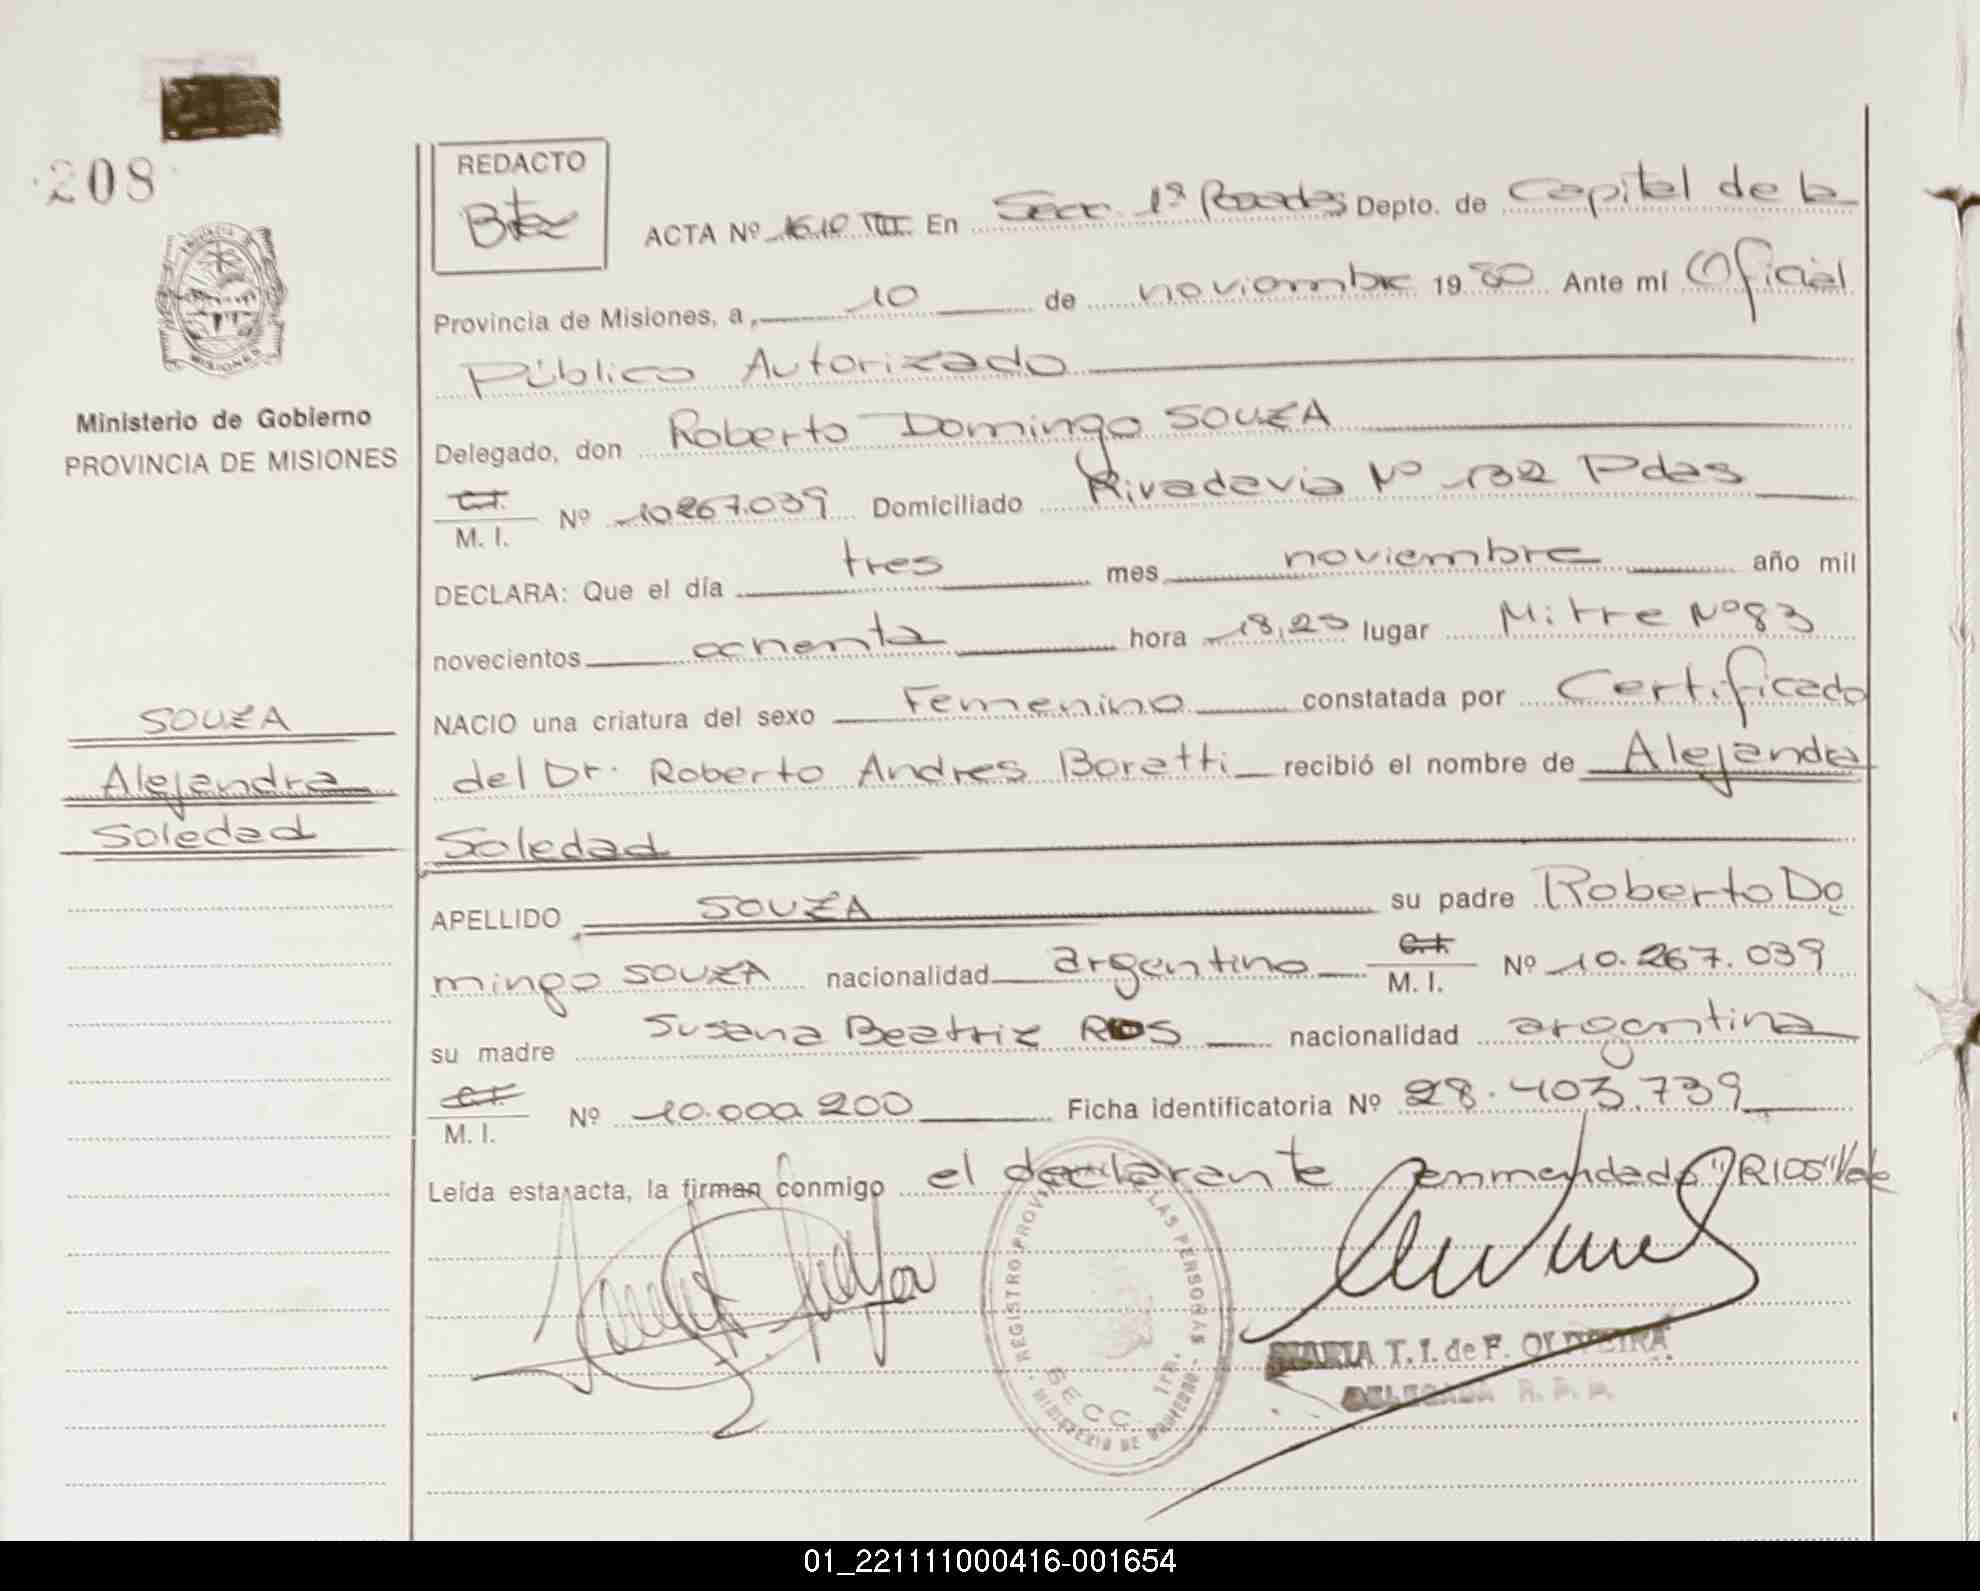 208
REDACTO
Btez
ACTA Nº 1610 III En Secc. 1ª Posadas Depto. de Capital de la
Provincia de Misiones, a 10 de noviembre 1980 Ante mí Oficial
Público Autorizado
Ministerio de Gobierno
PROVINCIA DE MISIONES
Delegado, don Roberto Domingo SOUZA
C.I.
M. I. Nº 10267.039 Domiciliado Rivadavia Nº 132 Pdas
DECLARA: Que el día tres mes noviembre año mil
novecientos ochenta hora 18,25 lugar Mitre Nº 83
NACIO una criatura del sexo Femenino constatada por Certificado
del Dr. Roberto Andres Boretti recibió el nombre de Alejandra
Soledad
SOUZA
Alejandra
Soledad
APELLIDO SOUZA su padre Roberto Do
mingo SOUZA nacionalidad argentino C.I.
M. I. Nº 10.267.039
su madre Susana Beatriz RIOS nacionalidad argentina
C.I.
M. I. Nº 10.000.200 Ficha identificatoria Nº 28.403.739
Leída esta acta, la firman conmigo el declarante enmendado "RIOS" Vale
REGISTRO PROV. LAS PERSONAS
SECC. 1ra.
MINISTERIO DE GOBIERNO
MARIA T. I. de F. OLIVEIRA
DELEGADA R. P. P.
01_221111000416-001654